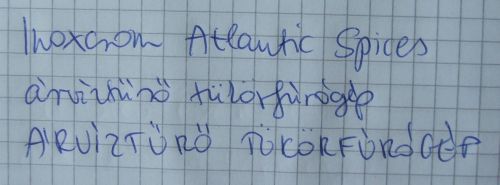 Inoxcrom Atlantic Spices
árvíztűrő tükörfúrógép
ÁRVÍZTŰRŐ TÜKÖRFÚRÓGÉP